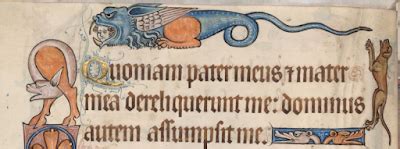 Quoniam pater meus ⁊ mater
mea dereliquerunt me: dominus
autem assumpsit me.